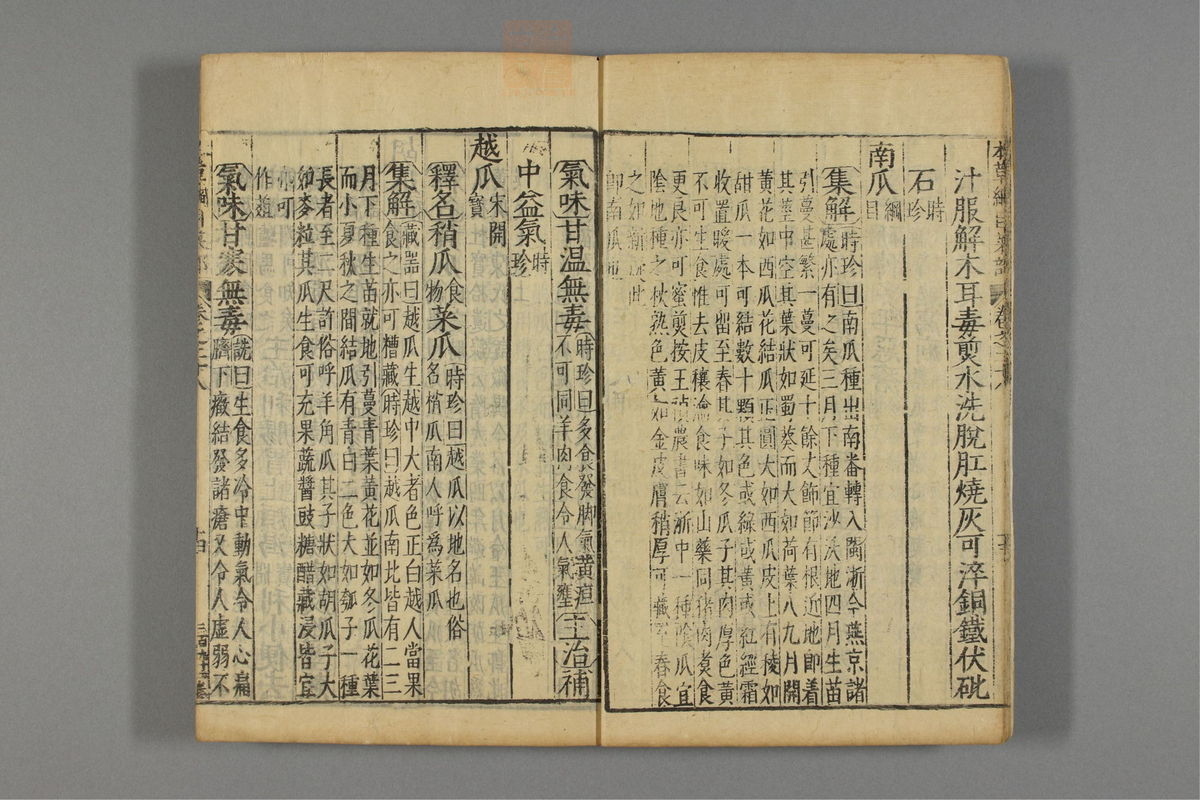 汁服解木耳毒煎水洗脫肛燒灰可淬銅鐵伏砒
石時珍
南瓜綱目
集解時珍曰南瓜種出南番轉入閩浙今燕京諸
處亦有之矣三月下種宜沙沃地四月生苗
引蔓甚繁一蔓可延十餘丈節節有根近地即着
其莖中空其葉狀如蜀葵而大如荷葉八九月開
黃花如西瓜花結瓜正圓大如西瓜皮上有稜如
甜瓜一本可結數十顆其色或綠或黃或紅經霜
收置暖處可留至春其子如冬瓜子其肉厚色黃
不可生食惟去皮穰瀹食味如山藥同猪肉煮食
更良亦可蜜煎按王禎農書云浙中一種陰瓜宜
陰地種之秋熟色黃如金皮膚稍厚可藏至春食
之如新此
即南瓜
氣味甘温無毒時珍曰多食發脚氣黃疸
不可同羊肉食令人氣壅主治補
中益氣時珍
越瓜宋開寶
釋名稍瓜食物菜瓜時珍曰越瓜以地名也俗
名梢瓜南人呼為菜瓜
集解藏器曰越瓜生越中大者色正白越人當果
食之亦可糟藏時珍曰越瓜南北皆有二三
月下種生苗就地引蔓青葉黃花並如冬瓜花葉
而小夏秋之間結瓜有青白二色大如瓠子一種
長者至二尺許俗呼羊角瓜其子狀如胡瓜子大
如麥粒其瓜生食可充果蔬醬豉糖醋藏浸皆宜
亦可
作葅
氣味甘寒無毒詵曰生食多冷中動氣令人心痛
臍下癥結發諸瘡又令人虛弱不